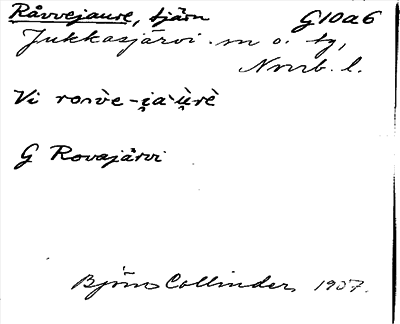 Råvvejaure, tjärn G10a6
Jukkasjärvi sn o. tg,
Norrb. l.
Vi
G Rovajärvi
Björn Collinder 1957.